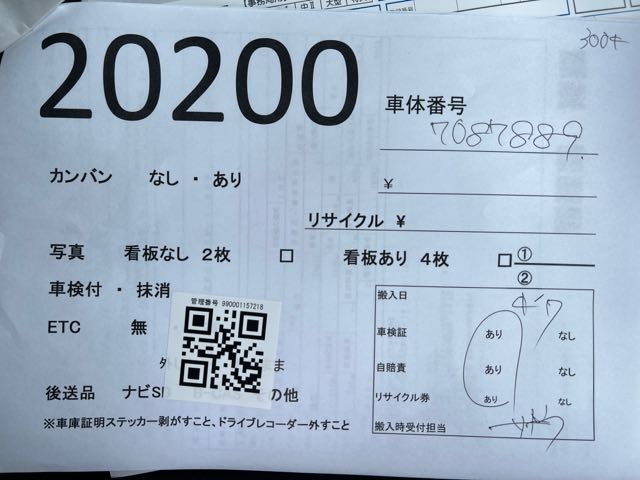 20200
3004
車体番号
7087889
カンバン　なし ・ あり
¥
リサイクル ¥
写真　看板なし 2枚 □　看板あり 4枚 □ ①
②
車検付 ・ 抹消
管理番号 990001157218
ETC　無
後送品　ナビSD の他
※車庫証明ステッカー剥がすこと、ドライブレコーダー外すこと
搬入日
車検証　あり　なし
自賠責　あり　なし
リサイクル券　あり　なし
搬入時受付担当